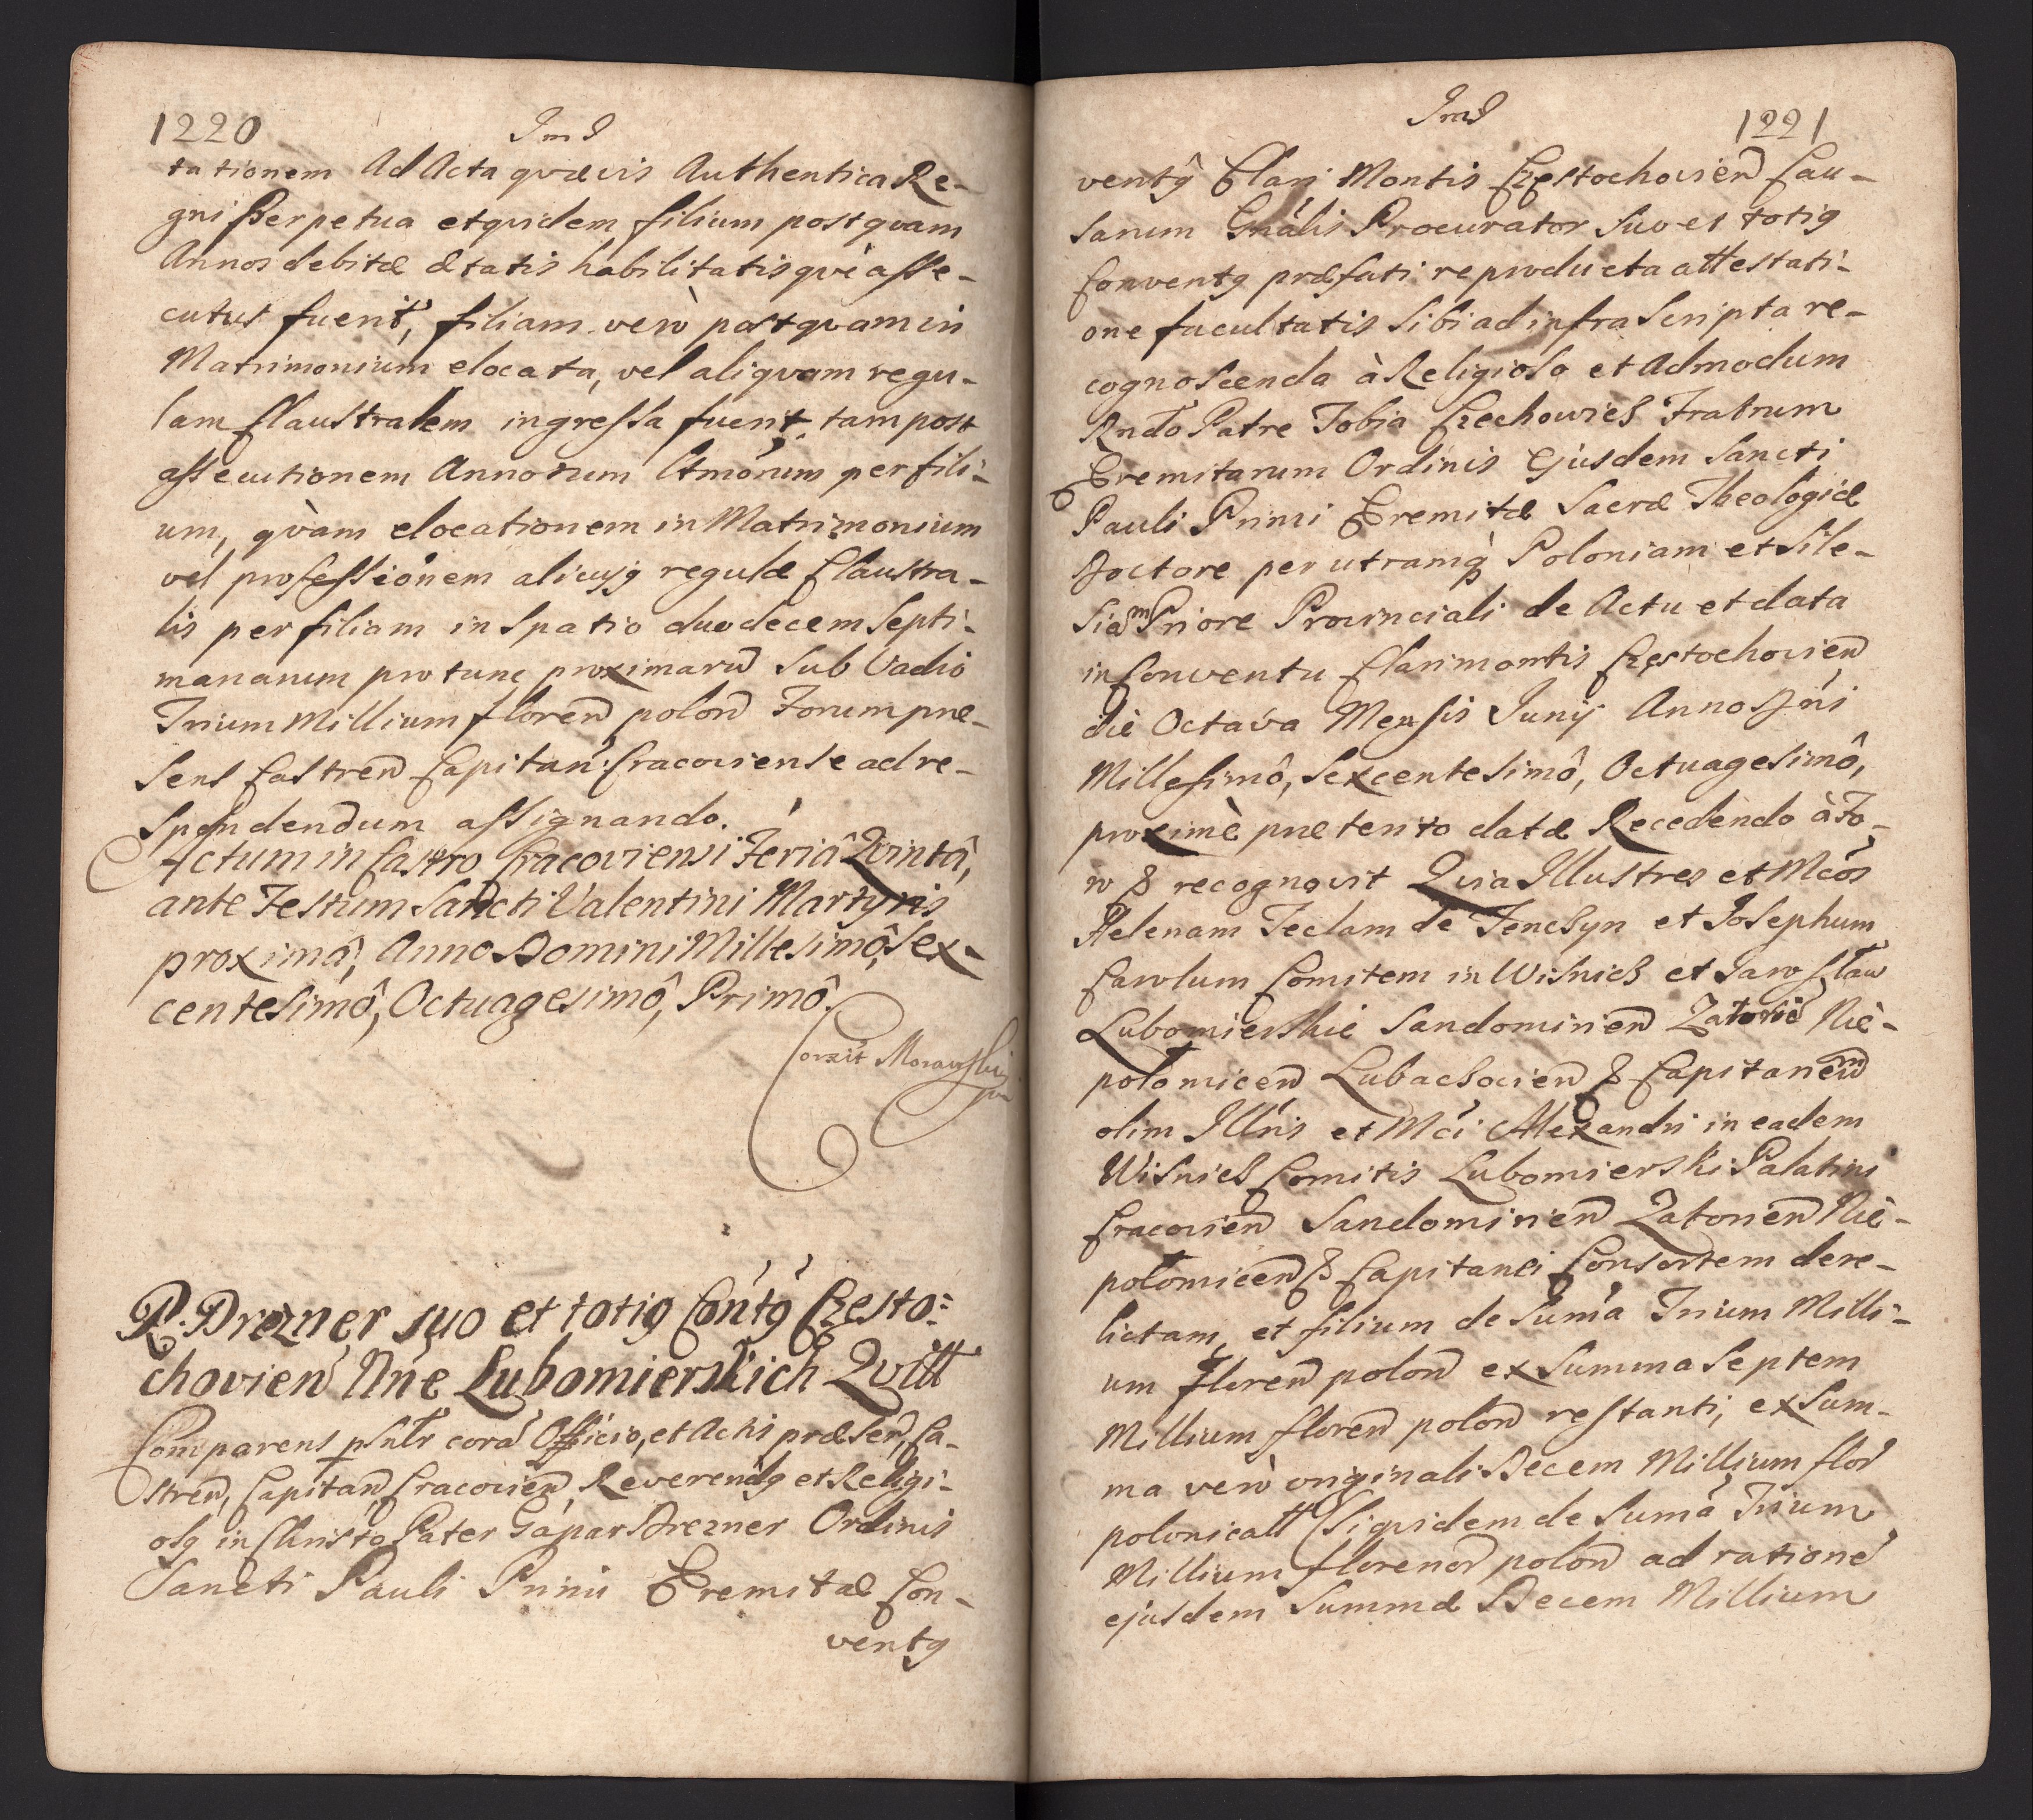 1220
tationem Ad Acta quævis Authentica Re-
gni Perpetua etquidem filium postquam
Annos debitæ ætatis habilitatisquè asse-
cutus fuerit, filiam verò postquam in
Matrimonium elocata, vel aliquam regu-
lam Claustralem ingressa fuerit, tam post
assecutionem Annorum per fili-
um, quàm elocationem in Matrimonium
vel professionem alicujg regulæ Claustra-
lis per filiam in Spatio duodecem Septi-
manarum pro tunc proximarũ Sub Vadio
Trium Millium floren polon Forum præ-
sens Castren Capitan: Cracoviense ad re-
spondendum assignando.
Actum in Castro Cracoviensi Feriâ Qvintâ,
ante Festum Sancti Valentini Martyris
proximâ, Anno Domini Millesimô, Sex-
centesimô, Octuagesimô, Primô.
P. Drezner suo et totig Contg Czesto=
chovien Lubomierskich Qvitt
Comparens psntr corã Officio, et Actis præsen, Ca-
stren, Capitan, Cracovien, Reverendg et Religi-
osg in Christo Pater Gaspar Drezner Ordinis
Sancti Pauli Primi Eremitæ Con-
ventg
1221
ventg Clari Montis Częstochovien Cau-
sarum Gnalis Procurator suo et totig
Conventg præfati reproducta attestati-
one facultatis sibi ad infra scripta re-
cognoscenda à Religioso et Admodum
Rndo Patre Tobia Czechowicz Fratrum
Eremitarum Ordinis Ejusdem Sancti
Pauli Primi Eremitæ Sacræ Theologiæ
Doctore per utramq Poloniam et Sile-
siam Priore Provinciali de Actu et data
in Conventu Clarimontis Częstochovien
die Octava Mensis Junij Anno Dni
Millesimô, Sexcentesimô, Octuagesimô,
proximè præterito datæ Recedendo à Fo-
ro & recognovit Quia Illustres et Mcos
Helenam Teclam de Tenczyn et Josephum
Carolum Comitem in Wisnicz et Jarosław
Lubomierskie Sandomirien Zatorien Nie-
połomicen Lubaczovien & Capitaneum
olim Illris et Mci Alexandri in eadem
Wisnicz Comitis Lubomierski Palatini
Cracovien Sandomirien Zatorien Nie-
połomicen & Capitanei Consortem dere-
lictam, et filium de Sum̃a Trium Milli-
um Floren polon ex Summa Septem
Millium floren polon restanti, ex Sum-
ma verò originali Decem Millium flor
polonicall (siquidem de Sum̃a Trium
Millium florenor polon ad rationẽ
ejusdem Summæ Decem Millium